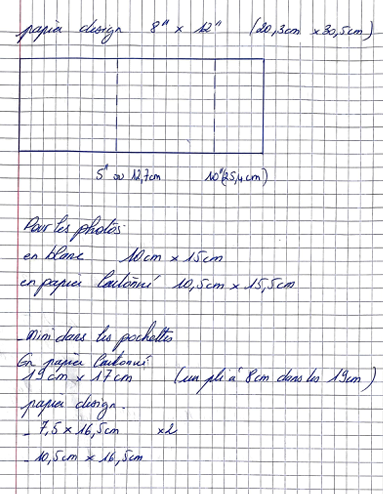 papier design 8" x 12" (20,3cm x 30,5cm)
5" ou 12,7cm 10"(25,4cm)
Pour les photos
en blanc 10cm x 15cm
en papier cartonné 10,5cm x 15,5cm
mini dans les pochettes
En papier cartonné
19cm x 17cm (un pli à 8cm dans les 19cm)
papier design.
- 7,5 x 16,5cm x2
- 10,5cm x 16,5cm